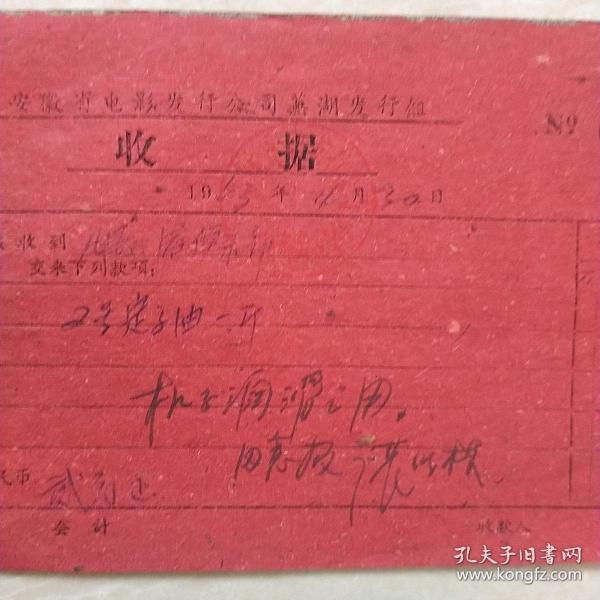 安徽省电影发行公司芜湖发行组
№
收 据
1963年4月30日
收到
交来下列款項:
2号锭子油一斤
机子润滑之用。
同意报
民币 贰元正
会 計 收款人
孔夫子旧書网
www.kongfz.com